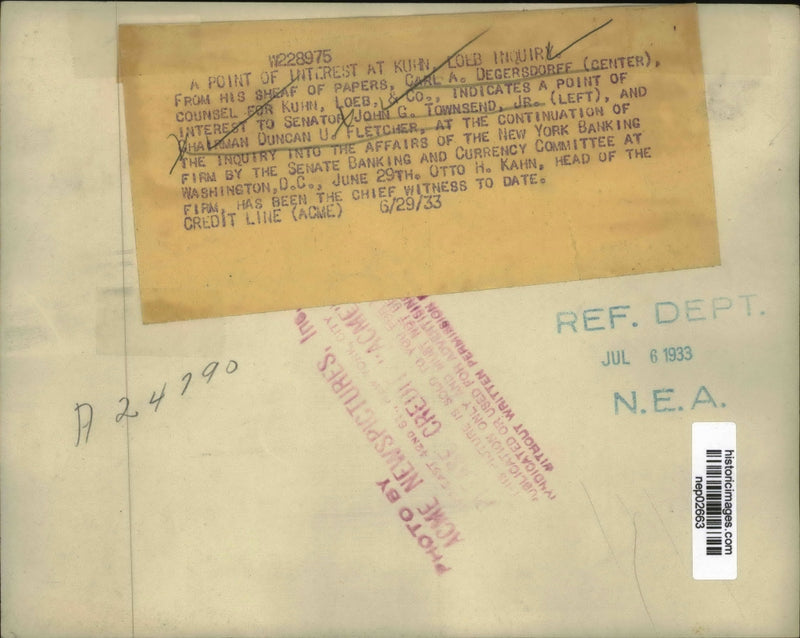 W228975
A POINT OF INTEREST AT KUHN, LOEB INQUIRY
FROM HIS SHEAF OF PAPERS, CARL A. DEGERSDORFF (CENTER),
COUNSEL FOR KUHN, LOEB, & CO., INDICATES A POINT OF
INTEREST TO SENATOR JOHN G. TOWNSEND, JR. (LEFT), AND
CHAIRMAN DUNCAN U. FLETCHER, AT THE CONTINUATION OF
THE INQUIRY INTO THE AFFAIRS OF THE NEW YORK BANKING
FIRM BY THE SENATE BANKING AND CURRENCY COMMITTEE AT
WASHINGTON, D.C., JUNE 29TH. OTTO H. KAHN, HEAD OF THE
FIRM, HAS BEEN THE CHIEF WITNESS TO DATE.
CREDIT LINE (ACME) 6/29/33
REF. DEPT.
JUL 6 1933
N.E.A.
A 24790
PHOTO BY
ACME NEWSPICTURES, Inc.
EAST 42ND
CREDIT "ACME"
PICTURE IS SOLD TO YOU FOR
PUBLICATION ONLY AND MUST NOT BE
SYNDICATED OR USED FOR ADVERTISING
WITHOUT WRITTEN PERMISSION
historicimages.com
nep02663